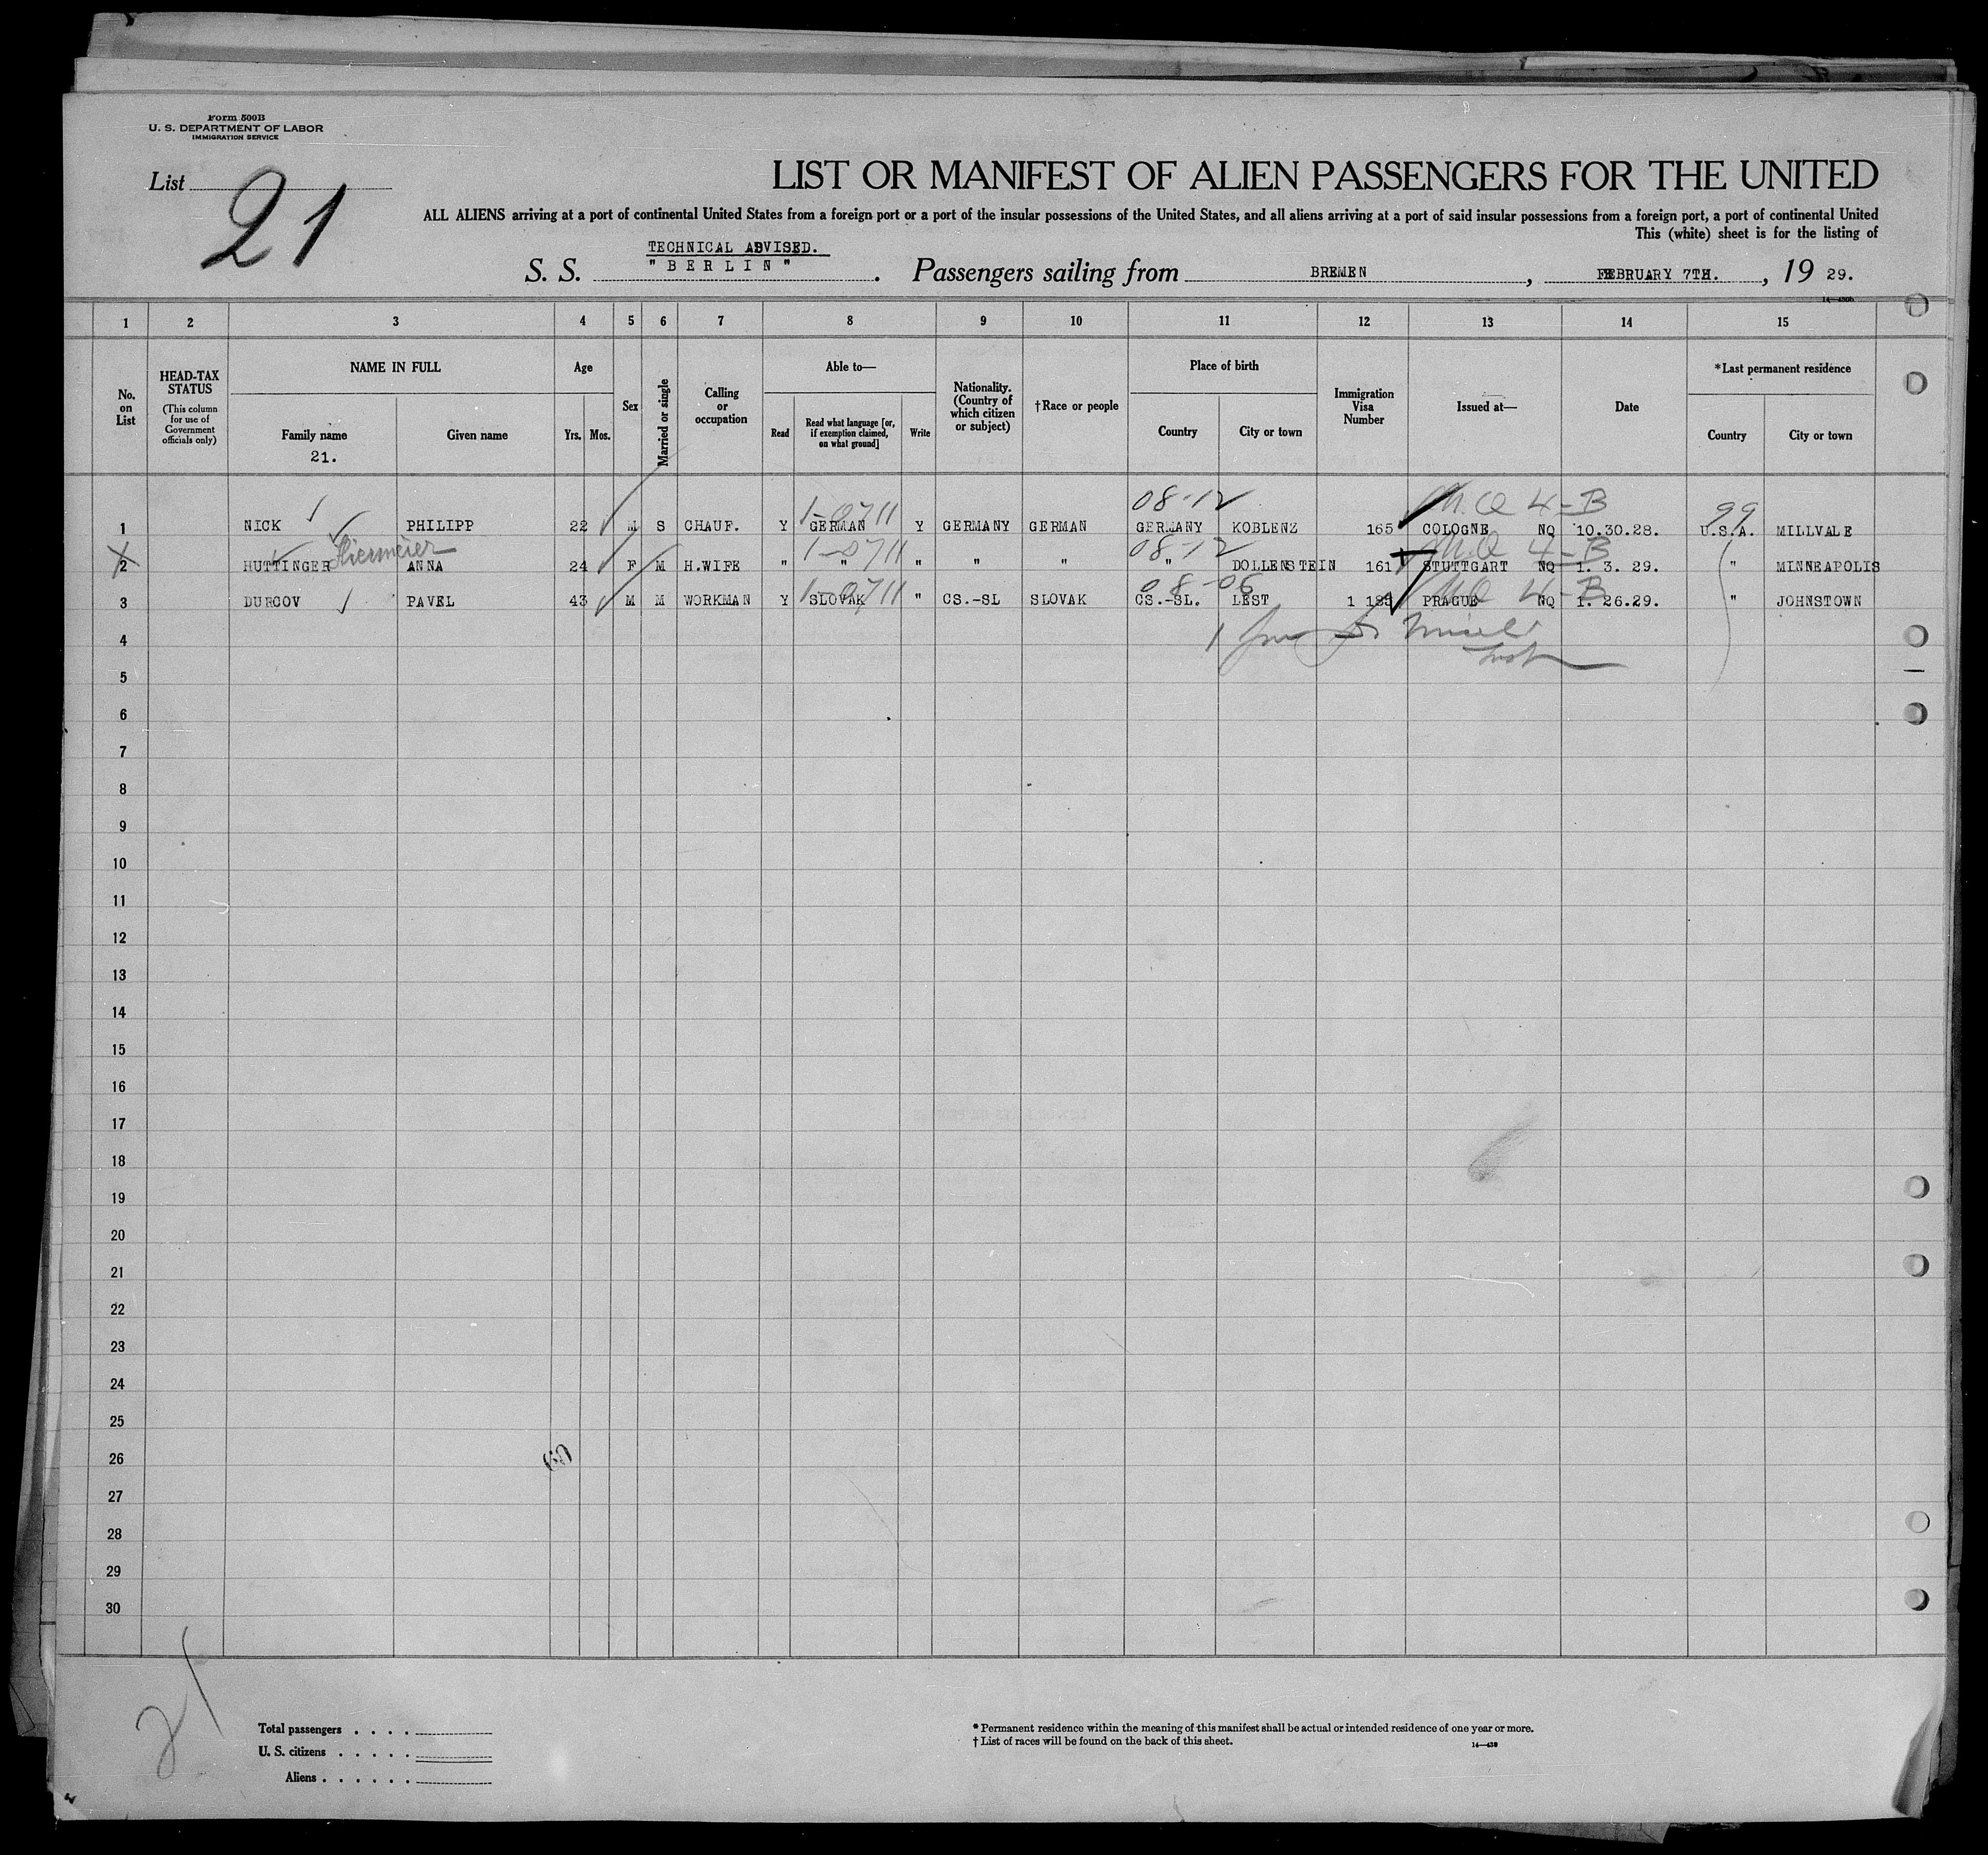 Form 500B
U. S. DEPARTMENT OF LABOR
IMMIGRATION SERVICE
List 21
LIST OR MANIFEST OF ALIEN PASSENGERS FOR THE UNITED
ALL ALIENS arriving at a port of continental United States from a foreign port or a port of the insular possessions of the United States, and all aliens arriving at a port of said insular possessions from a foreign port, a port of continental United
This (white) sheet is for the listing of
TECHNICAL ADVISED.
S. S. "BERLIN". Passengers sailing from BREMEN, FEBRUARY 7TH., 19 29.
1 2 3 4 5 6 7 8 9 10 11 12 13 14 15
No. on List
HEAD-TAX STATUS
(This column for use of Government officials only)
NAME IN FULL
Family name
21.
Given name
Age
Yrs. Mos.
Sex
Married or single
Calling or occupation
Able to—
Read
Read what language [or, if exemption claimed, on what ground]
Write
Nationality. (Country of which citizen or subject)
†Race or people
Place of birth
Country
City or town
Immigration Visa Number
Issued at—
Date
*Last permanent residence
Country
City or town
1-0711 08-12 4-B 99
1 NICK PHILIPP 22 M S CHAUF. Y GERMAN Y GERMANY GERMAN GERMANY KOBLENZ 165 COLOGNE NQ 10.30.28. U.S.A. MILLVALE
1-0711 08-12 4-B
2 HUTTINGER ANNA 24 F M H.WIFE " " " " " " DOLLENSTEIN 161 STUTTGART NQ 1. 3. 29. " MINNEAPOLIS
1-0711 08-06 4-B
3 DURCOV PAVEL 43 M M WORKMAN Y SLOVAK " CS.-SL SLOVAK CS.-SL. LEST PRAGUE NQ 1. 26.29. " JOHNSTOWN
4
5
6
7
8
9
10
11
12
13
14
15
16
17
18
19
20
21
22
23
24
25
26
27
28
29
30
21
Total passengers . . . .
U. S. citizens . . . . .
Aliens . . . . . .
* Permanent residence within the meaning of this manifest shall be actual or intended residence of one year or more.
† List of races will be found on the back of this sheet.
14—430